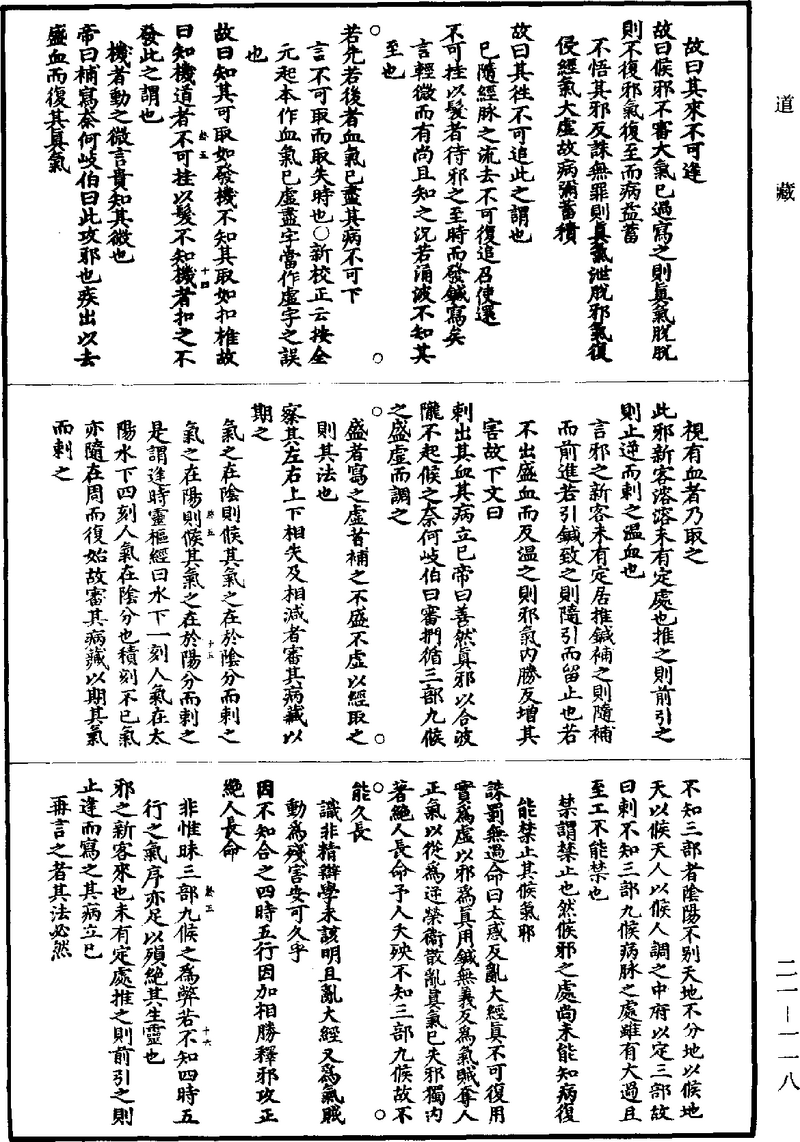 道藏
故曰其來不可逢
故曰候邪不審大氣已過寫之則眞氣脫脫
則不復邪氣復至而病益蓄
不悟其邪反誅無罪則眞氣泄脫邪氣復
侵經氣大虛故病彌蓄積
故曰其往不可追此之謂也
已隨經脉之流去不可復追召使還
不可挂以髮者待邪之至時而發鍼寫矣
言輕微而有尚且知之況若涌波不知其
至也
若先若後者血氣已盡其病不可下
言不可取而取失時也○新校正云按全
元起本作血氣已虛盡字當作虛字之誤
也
故曰知其可取如發機不知其取如扣椎故
曰知機道者不可挂以髮不知機者扣之不
發此之謂也
機者動之微言貴知其微也
帝曰補寫柰何岐伯曰此攻邪也疾出以去
盛血而復其眞氣
視有血者乃取之
此邪新客溶溶未有定處也推之則前引之
則止逆而刺之温血也
言邪之新客未有定居推鍼補之則隨補
而前進若引鍼致之則隨引而留止也若
不出盛血而反温之則邪氣内勝反增其
害故下文曰
刺出其血其病立已帝曰善然眞邪以合波
隴不起候之柰何岐伯曰審捫循三部九候
之盛虛而調之
盛者寫之虛者補之不盛不虛以經取之
則其法也
察其左右上下相失及相減者審其病藏以
期之
氣之在陰則候其氣之在於陰分而刺之
氣之在陽則候其氣之在於陽分而刺之
是謂逢時靈樞經曰水下一刻人氣在太
陽水下四刻人氣在陰分也積刻不已氣
亦隨在周而復始故審其病藏以期其氣
而刺之
不知三部者陰陽不别天地不分地以候地
天以候天人以候人調之中府以定三部故
曰刺不知三部九候病脉之處雖有大過且
至工不能禁也
禁謂禁止也然候邪之處尚未能知病復
能禁止其候氣邪
誅罰無過命曰大惑反亂大經眞不可復用
實爲虛以邪爲眞用鍼無義反爲氣賊奪人
正氣以從爲逆榮衞散亂眞氣已失邪獨内
著絶人長命予人夭殃不知三部九候故不
能久長
識非精辯學未該明且亂大經又爲氣賊
動爲殘害安可久乎
因不知合之四時五行因加相勝釋邪攻正
絶人長命
非惟昧三部九候之爲弊若不知四時五
行之氣序亦足以殞絶其生靈也
邪之新客來也未有定處推之則前引之則
止逢而寫之其病立已
再言之者其法必然
二一—一一八